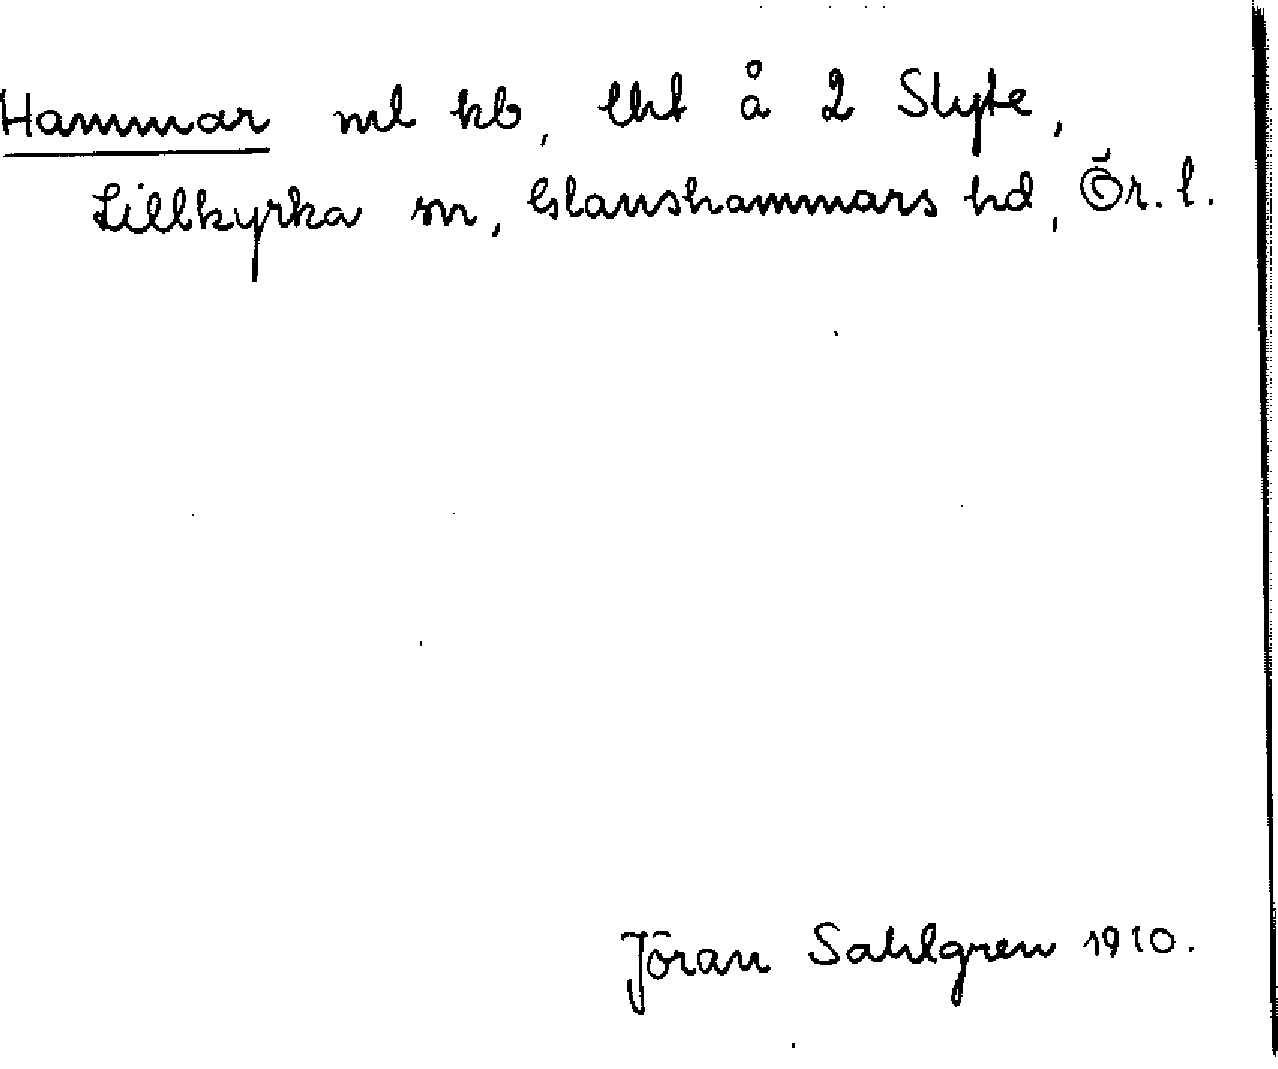 Hammar ml kb, lht å 2 Slyte,
Lillkyrka sn, Glanshammars hd, Ör. l.
Jöran Sahlgren 1910.